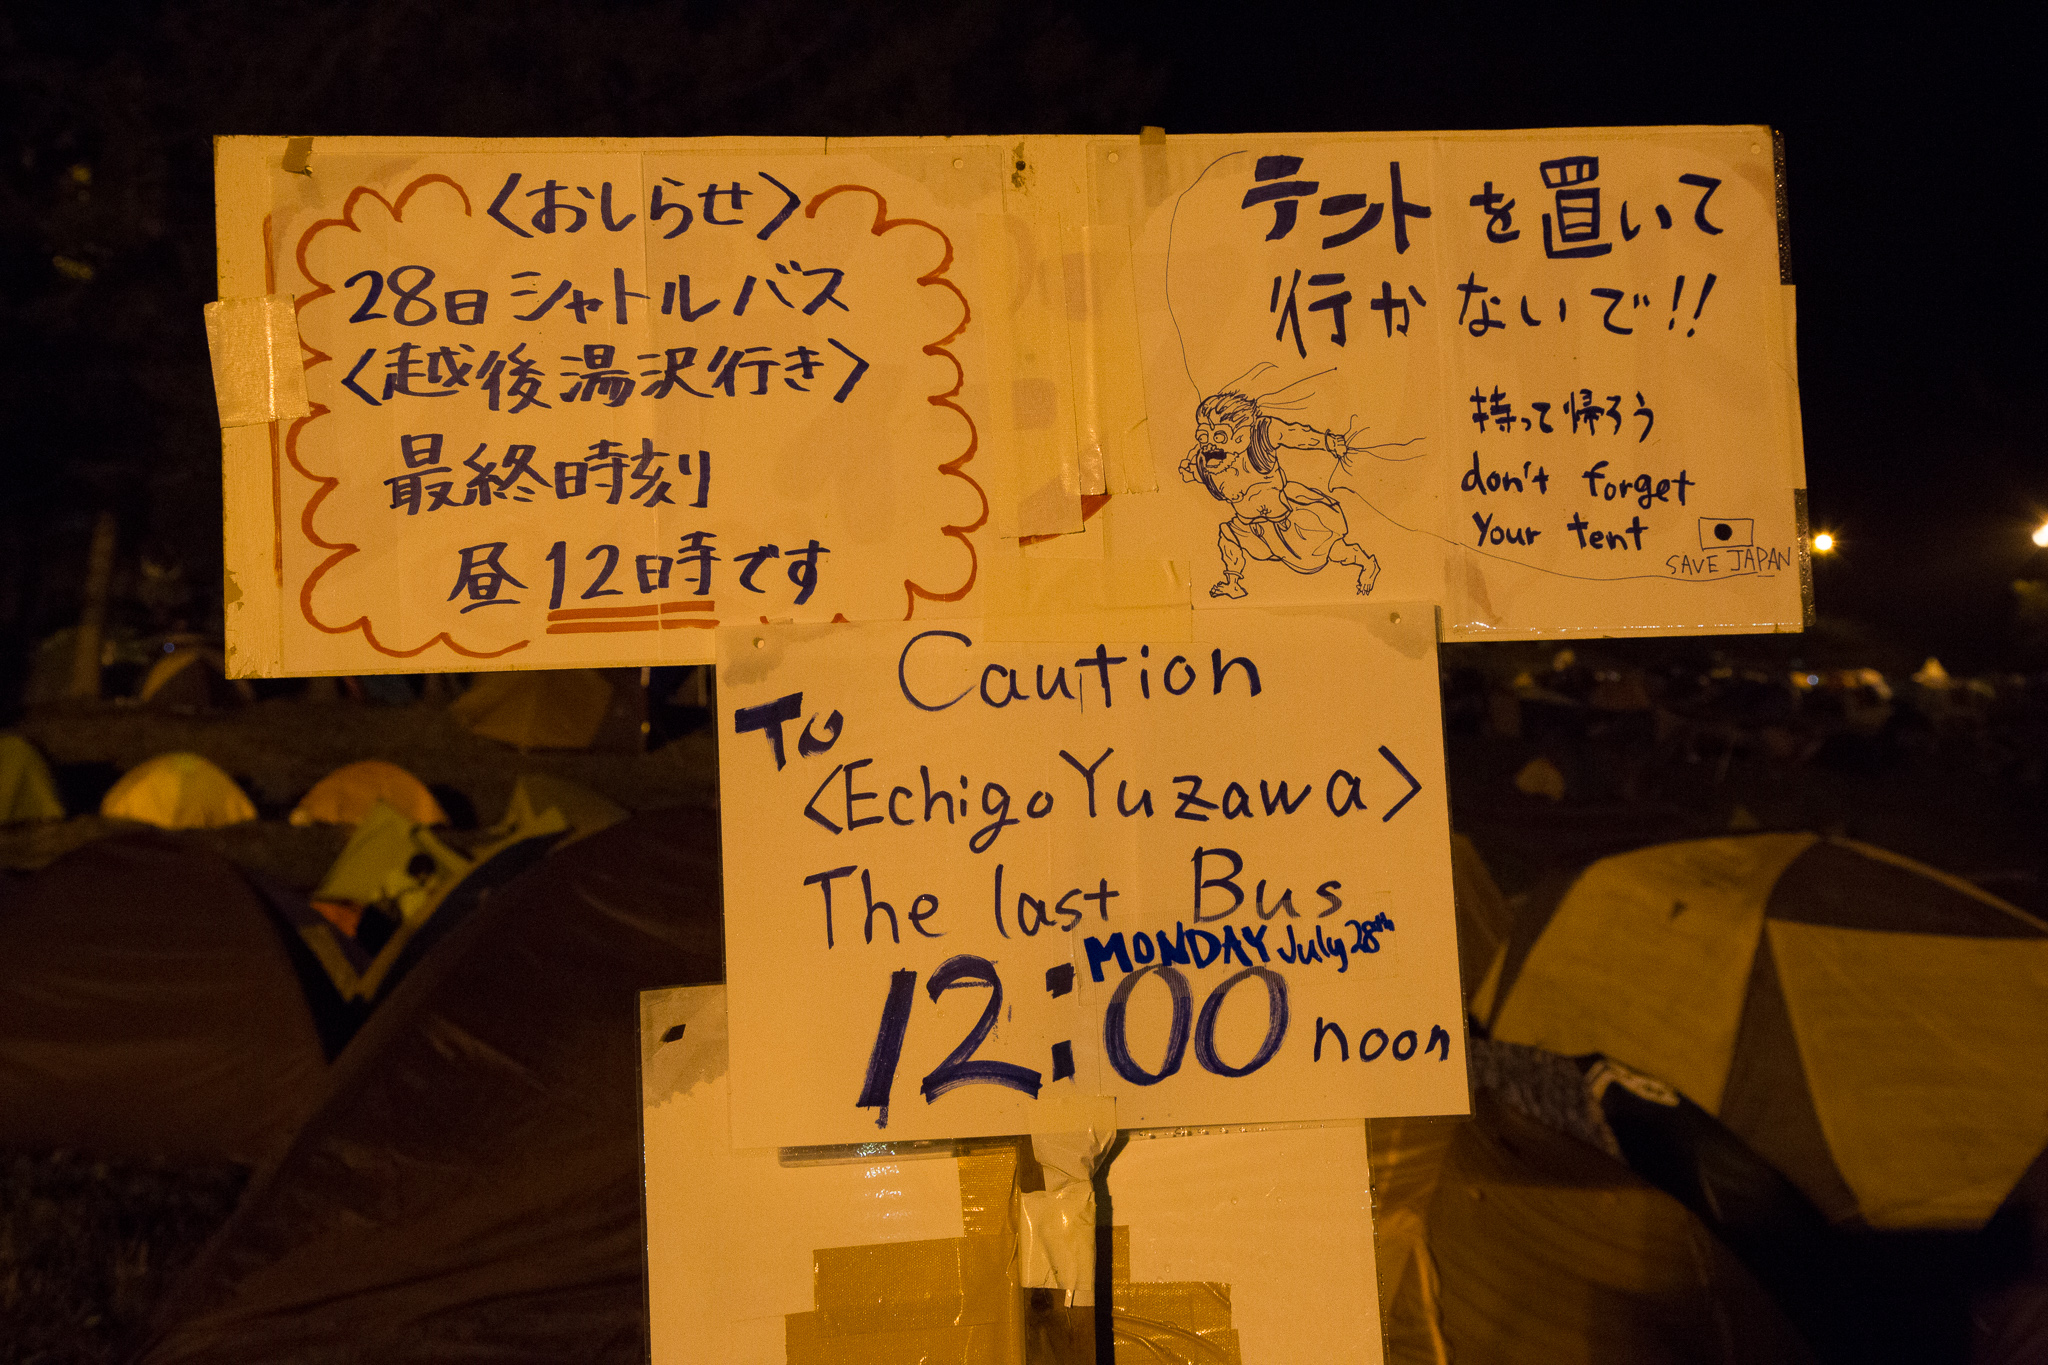 〈おしらせ〉
28日シャトルバス
〈越後湯沢行き〉
最終時刻
昼12時です
テントを置いて
行かないで!!
持って帰ろう
don't forget
Your tent
SAVE JAPAN
Caution
To
<Echigo Yuzawa>
The last Bus
MONDAY July 28th
12:00 noon